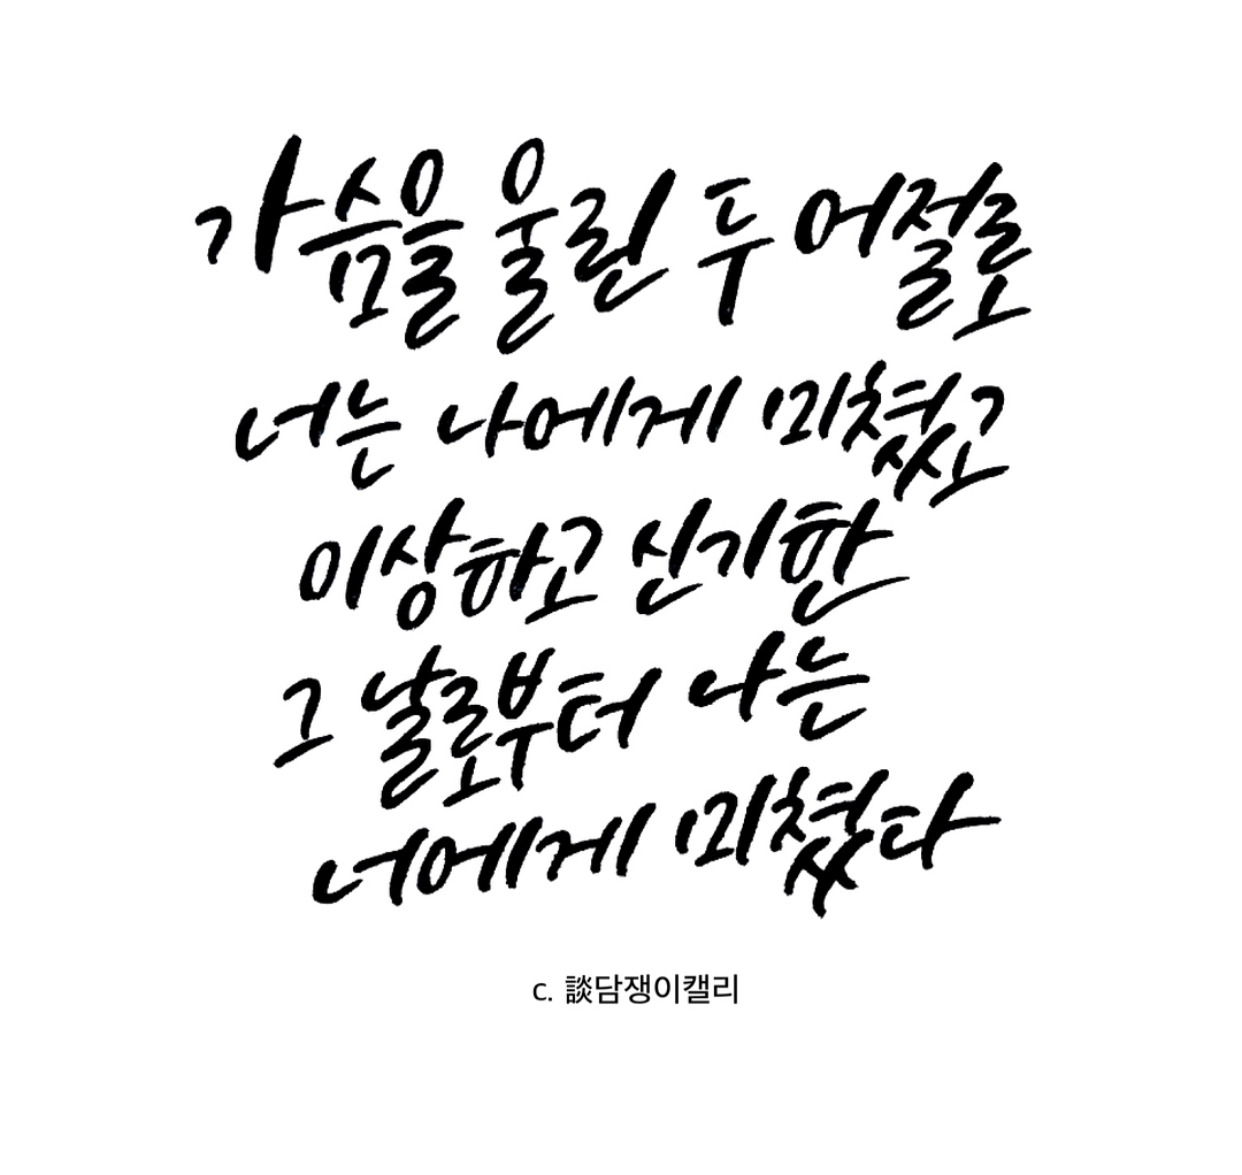 가슴을 울린 두 어절로
너는 나에게 미쳤고
이상하고 신기한
그 날로부터 나는
너에게 미쳤다
c. 談담쟁이캘리